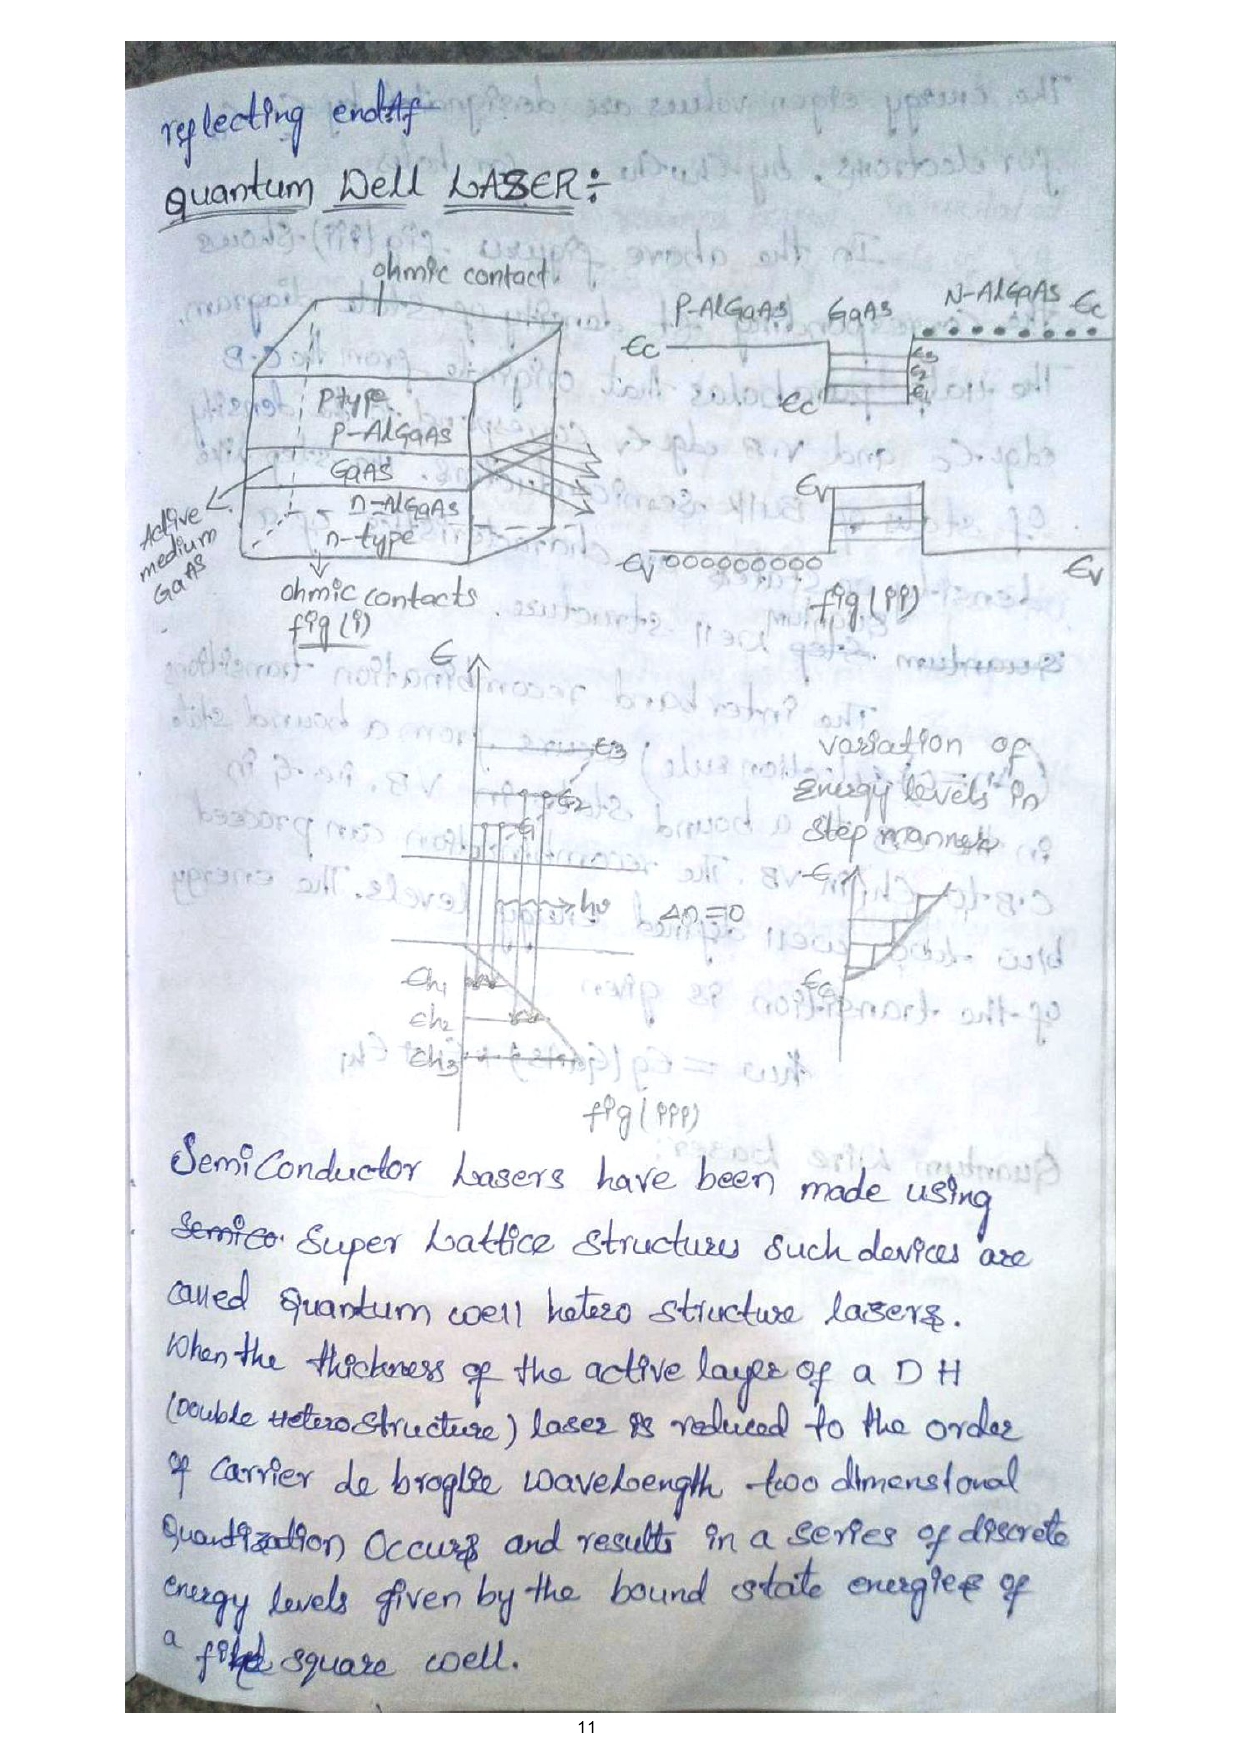 reflecting ends
Quantum Dell LASER:-
ohmic contact
P type
P-AlGaAs
GaAs
n-AlGaAs
n-type
Active
medium
GaAs
ohmic contacts
fig (i)
P-AlGaAs GaAs N-AlGaAs Ec
Ec
E3
E2
E1
Ec
Ev
Ev
Ev
fig (ii)
E
E3
E2
E1
hν
Δn=0
Eh1
Eh2
Eh3
fig (iii)
variation of
Energy levels in
step manner
E
Ec
SemiConductor Lasers have been made using
Semico. Super Lattice Structures Such devices are
called Quantum well hetero structure lasers.
When the thickness of the active layer of a D H
(Double Hetero Structure) laser is reduced to the order
of carrier de broglie wavelength two dimensional
Quantization Occurs and results in a series of discrete
energy levels given by the bound state energies of
a square well.
11